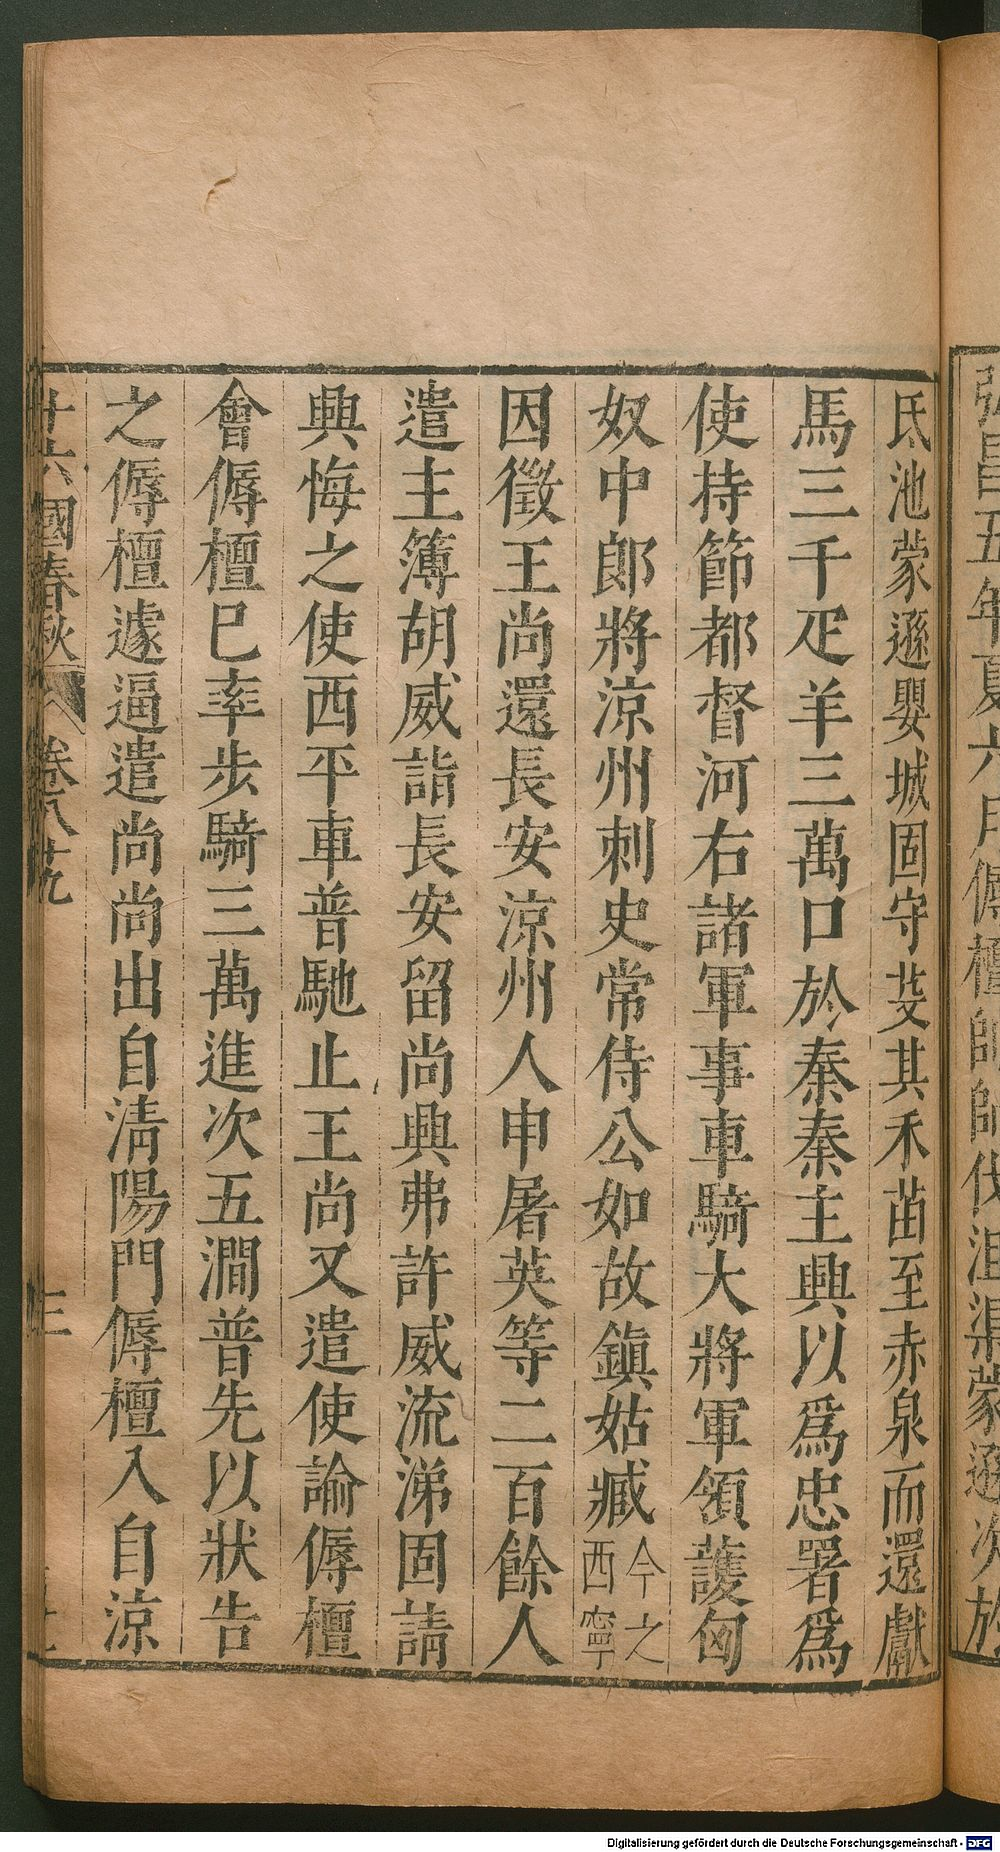 弘昌五年夏六月傉檀帥師伐沮渠蒙遜次於
氐池蒙遜嬰城固守芟其禾苗至赤泉而還獻
馬三千疋羊三萬口於秦秦主興以爲忠署爲
使持節都督河右諸軍事車騎大將軍領護匈
奴中郎將涼州刺史常侍公如故鎭姑臧今之西寧
因徵王尚還長安涼州人申屠英等二百餘人
遣主簿胡威詣長安留尚興弗許威流涕固請
興悔之使西平車普馳止王尚又遣使諭傉檀
會傉檀巳率步騎三萬進次五澗普先以狀告
之傉檀遽逼遣尚尚出自淸陽門傉檀入自涼
十六國春秋 卷八十九 三
Digitalisierung gefördert durch die Deutsche Forschungsgemeinschaft - DFG